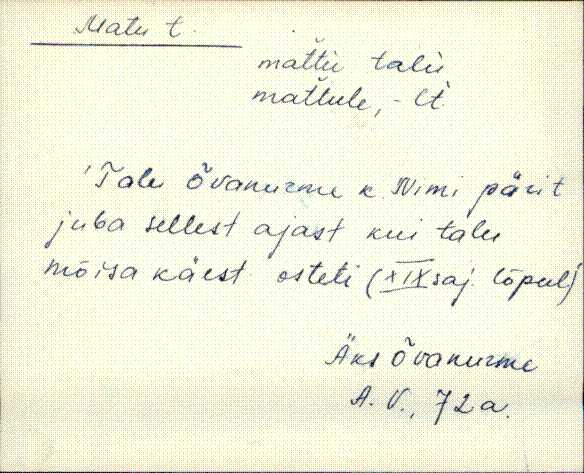 Matu t.
mattu talu
mattule, -lt
Talu Õvanurme k. Nimi pärit
juba sellest ajast kui talu
mõisa käest osteti (XIX saj. lõpul)
Äks Õvanurme
A. V., 72 a.